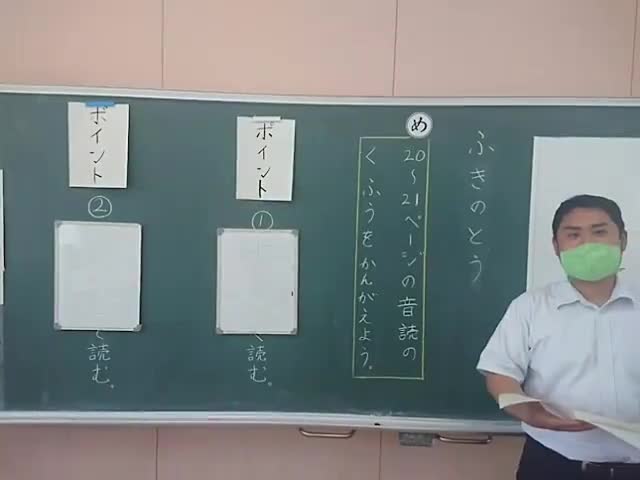 ふきのとう
め
20〜21ページの音読の
くふうをかんがえよう。
ポイント
①
く読む。
ポイント
②
て読む。